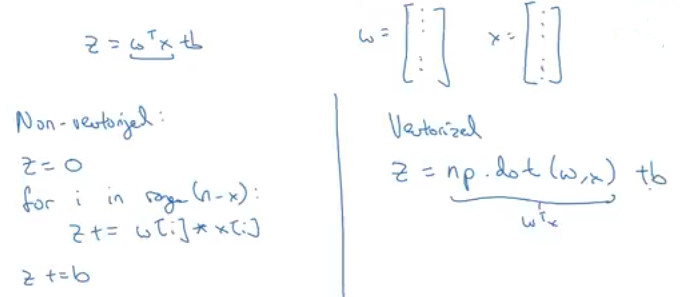 z = wᵀx + b
w = [⋮] x = [⋮]
Non-vectorized:
z = 0
for i in range(n-x):
z += w[i] * x[i]
z += b
Vectorized
z = np.dot(w,x) + b
wᵀx